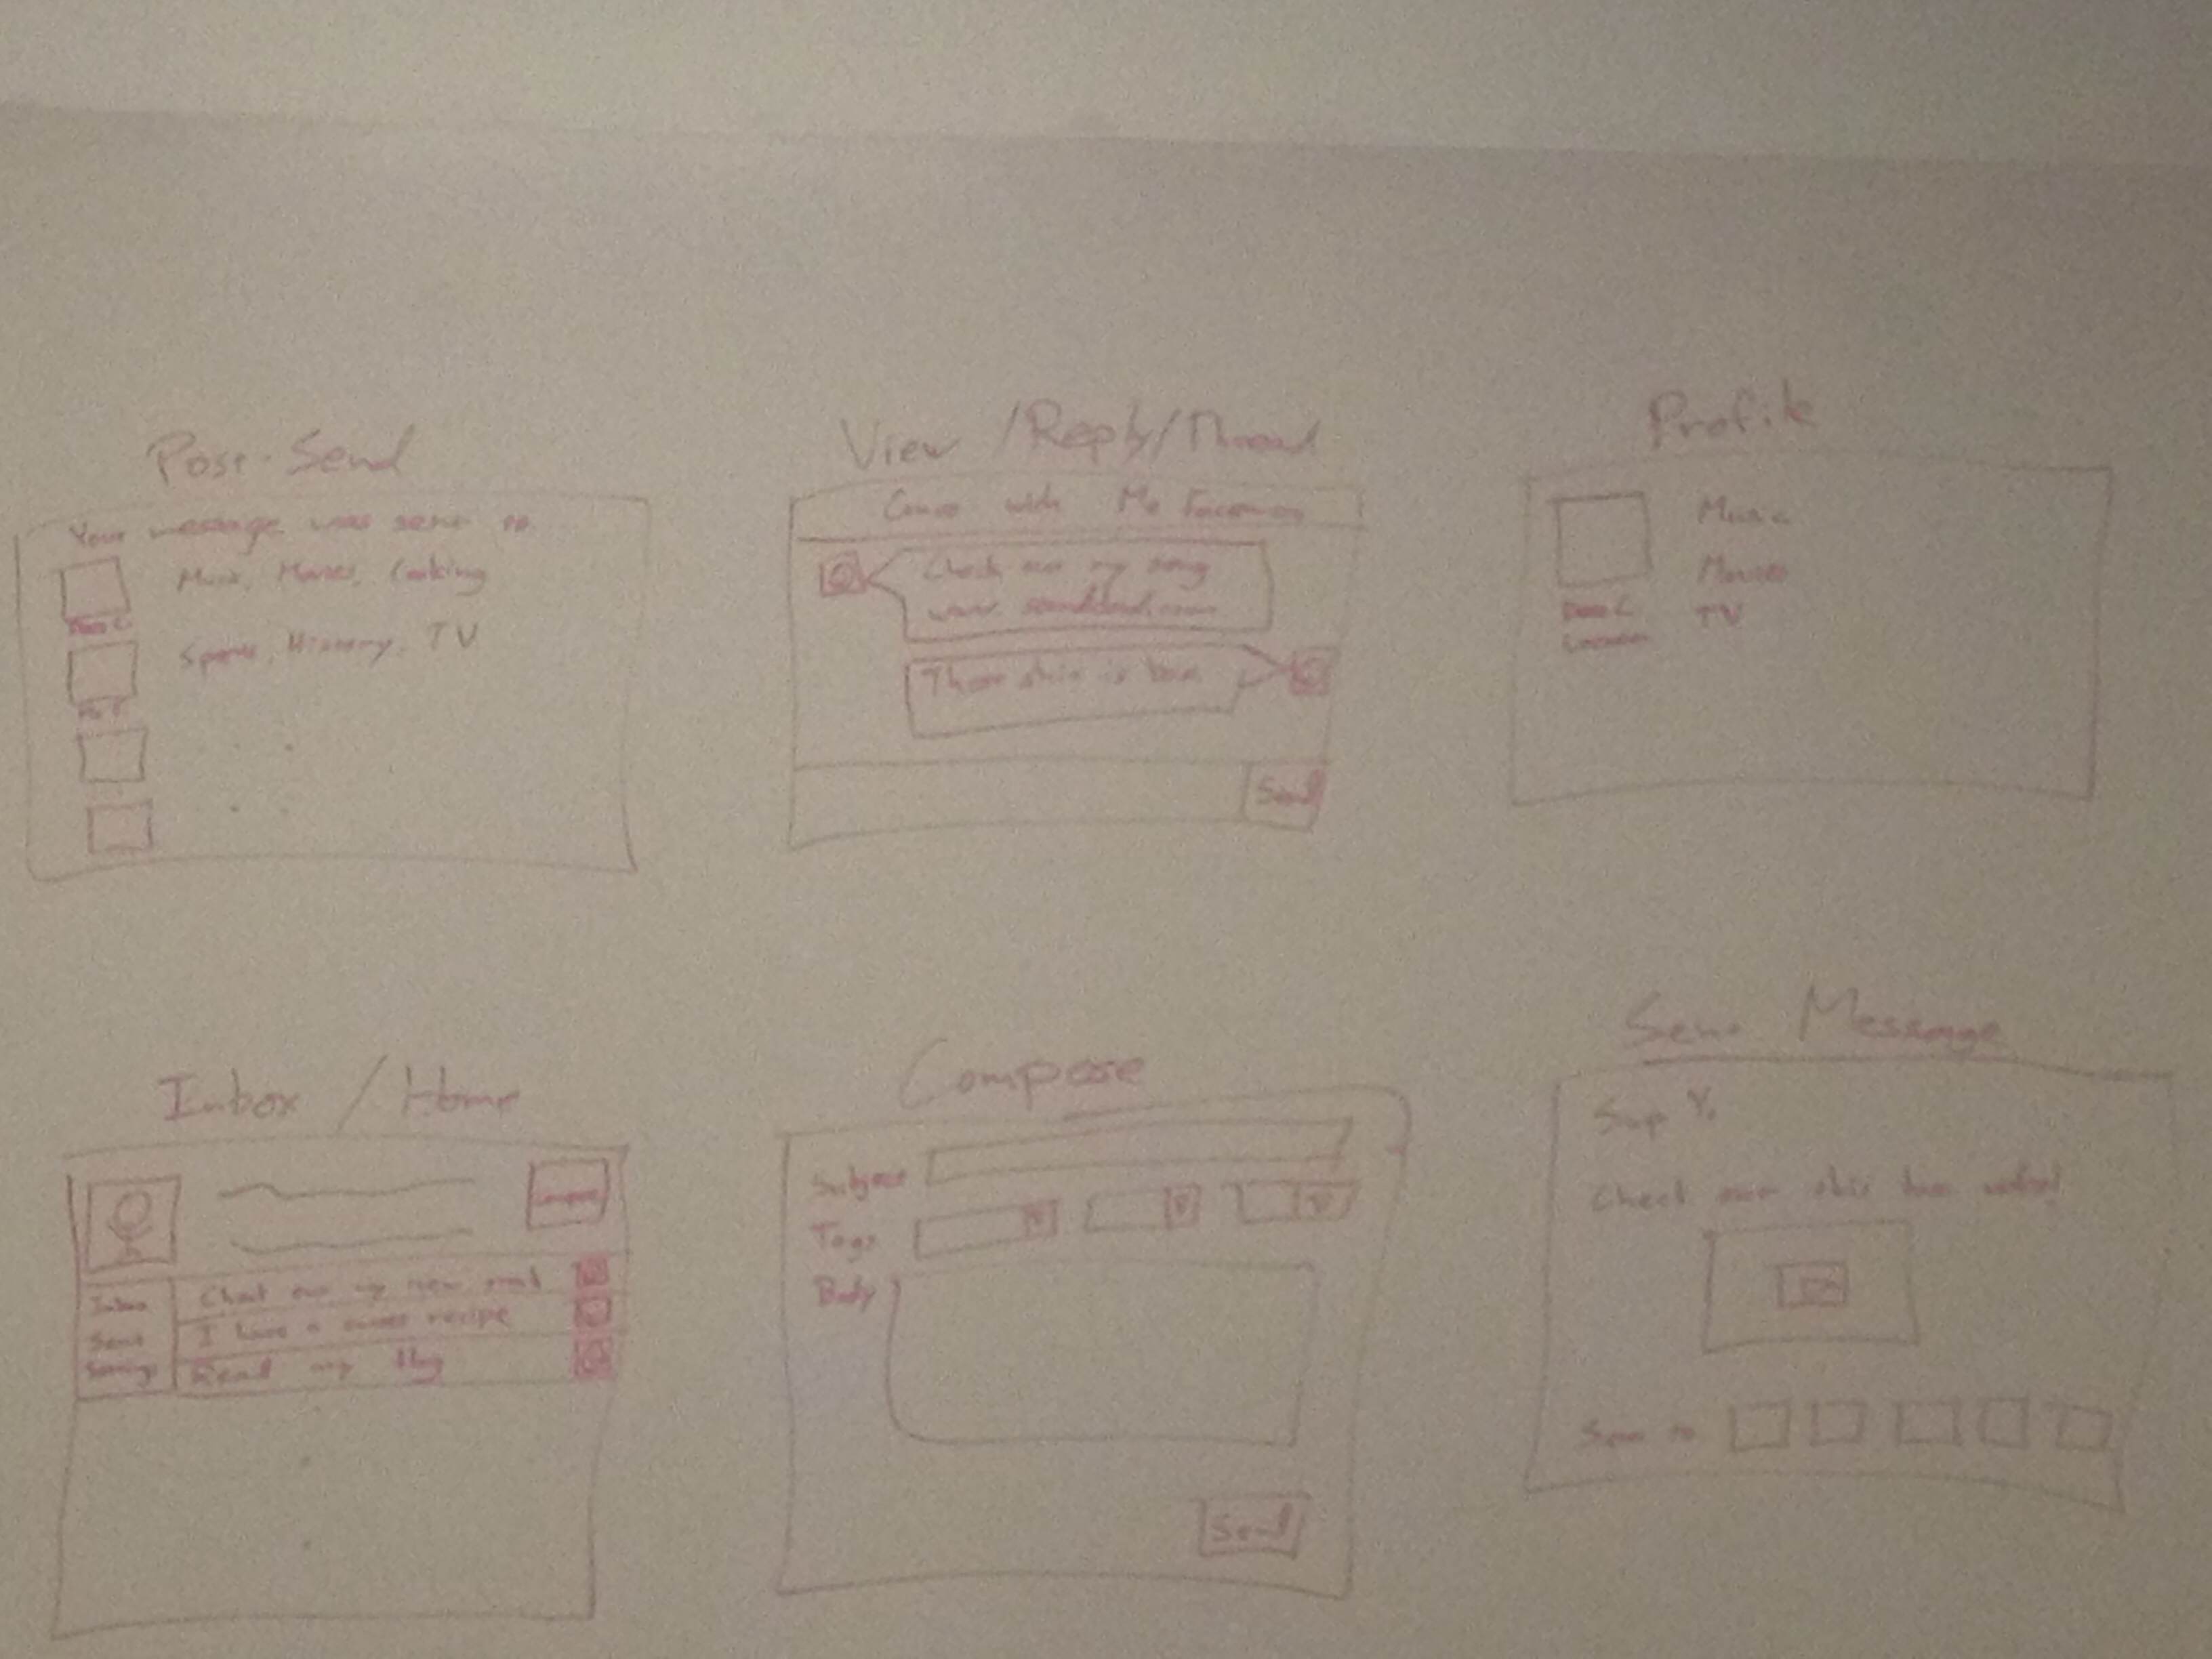 Post-Send
Your message was sent to
Music, Movies, Cooking
Sports, History, TV
View / Reply / Thread
Convo with Mc
Check out my song
www. soundcloud.com
Send
Profile
Music
Movies
TV
Inbox / Home
Compose
Inbox
Sent
Settings
Check out my new
I have a sweet recipe
Read my blog
Compose
Subject
Tags
Body
Send
Sent Message
Sup Yo
Check out this
Sent to